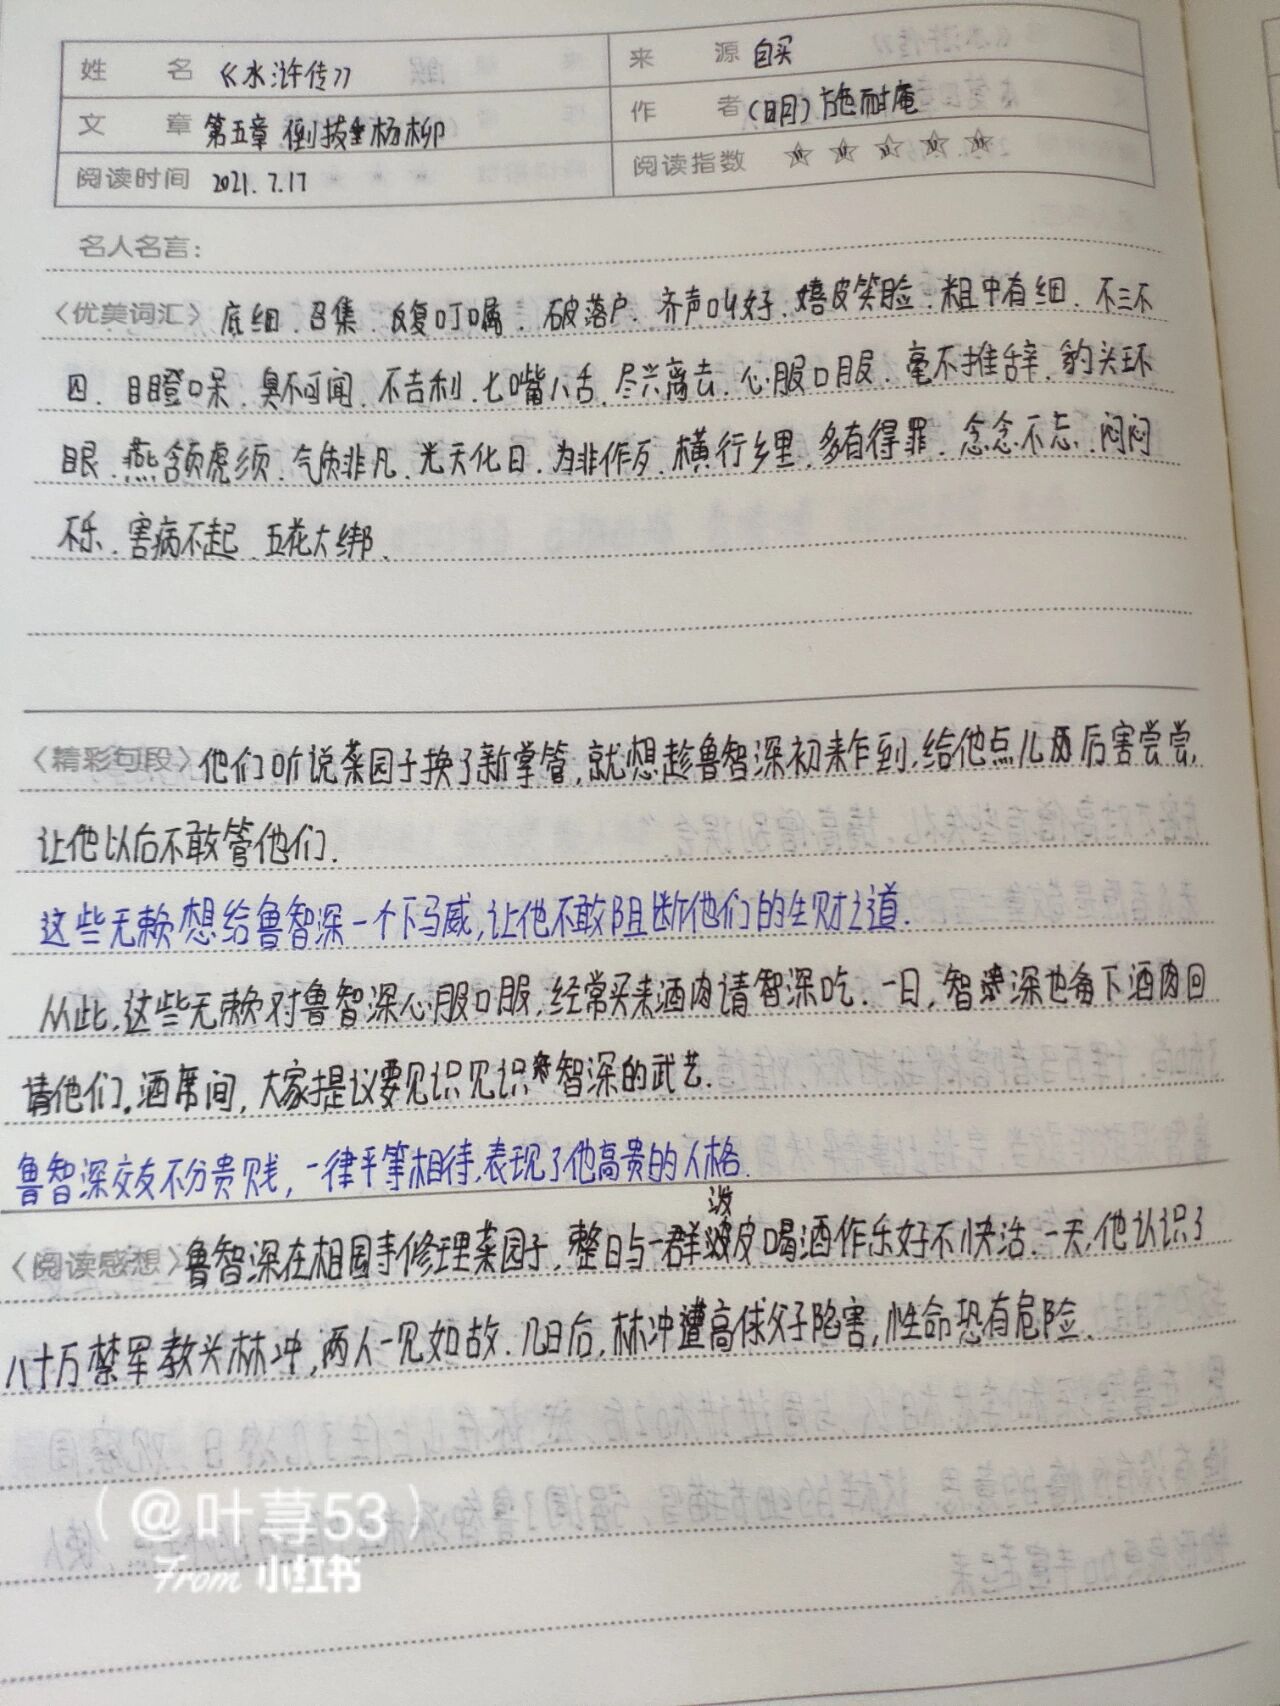 姓名 《水浒传》 来源 自买
文章 第五章 倒拔垂杨柳 作者 (明) 施耐庵
阅读时间 2021.7.17 阅读指数 ☆ ☆ ☆ ☆ ☆
名人名言:
〈优美词汇〉底细、召集、反复叮嘱、破落户、齐声叫好、嬉皮笑脸、粗中有细、不三不
四、目瞪口呆、臭不可闻、不吉利、七嘴八舌、尽兴离去、心服口服、毫不推辞、豹头环
眼、燕颔虎须、气质非凡、光天化日、为非作歹、横行乡里、多有得罪、念念不忘、闷闷
不乐、害病不起、五花大绑、
〈精彩句段〉他们听说菜园子换了新掌管,就想趁鲁智深初来乍到,给他点儿厉害尝尝,
让他以后不敢管他们.
这些无赖想给鲁智深一个下马威,让他不敢阻断他们的生财之道.
从此,这些无赖对鲁智深心服口服,经常买来酒肉请智深吃.一日,智深也备下酒肉回
请他们。酒席间,大家提议要见识见识智深的武艺.
鲁智深交友不分贵贱,一律平等相待,表现了他高贵的人格.
〈阅读感想〉鲁智深在相国寺修理菜园子,整日与一群泼皮喝酒作乐好不快活.一天,他认识了
八十万禁军教头林冲,两人一见如故.几日后,林冲遭高俅父子陷害,性命恐有危险.
(@叶荨53)
From 小红书